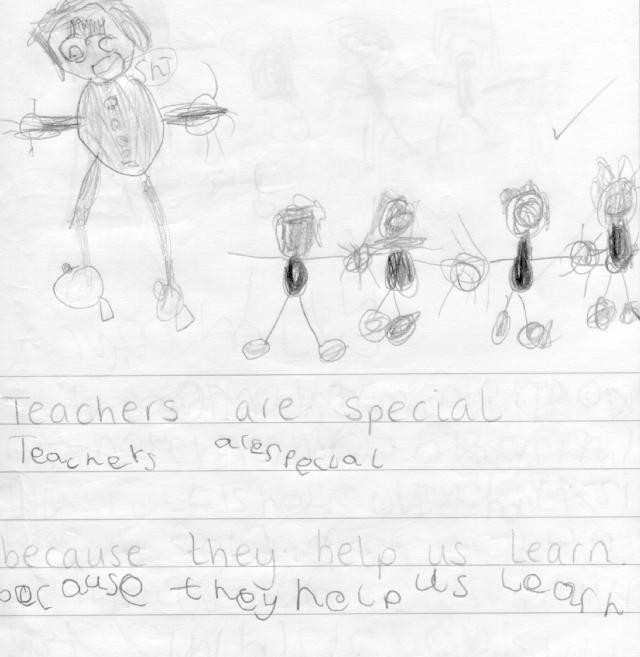 Teachers are special
Teachers are special
because they help us learn.
because they help us Learn